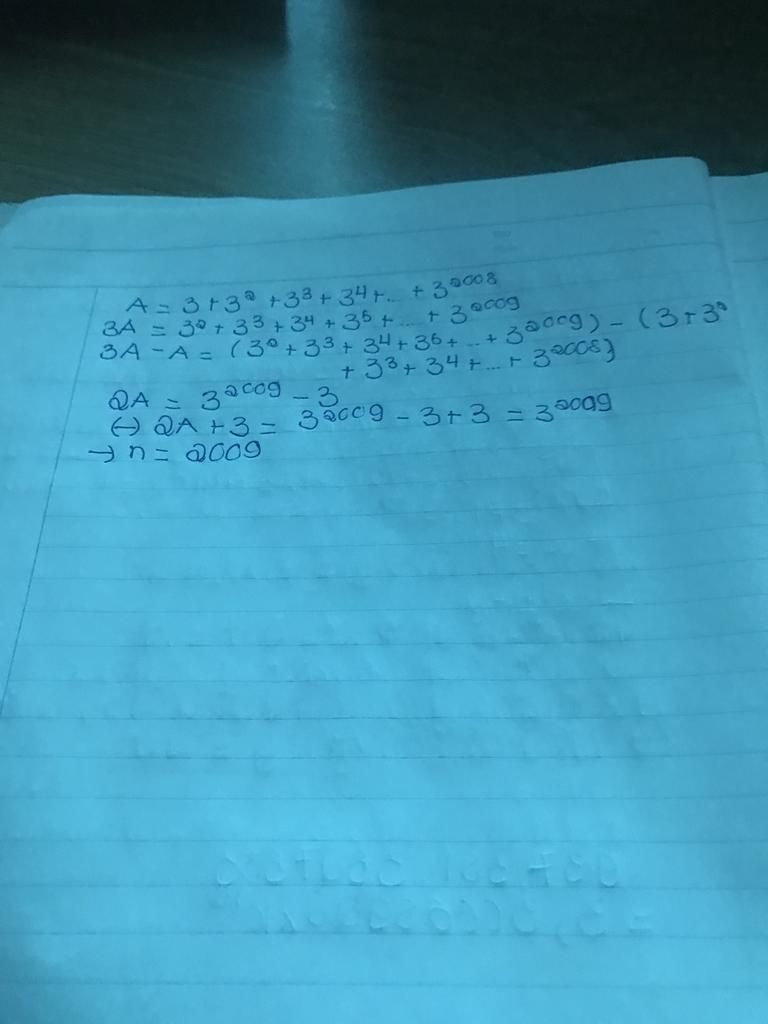 A = 3 + 3² + 3³ + 3⁴ + ... + 3²⁰⁰⁸
3A = 3² + 3³ + 3⁴ + 3⁵ + .... + 3²⁰⁰⁹
3A - A = (3² + 3³ + 3⁴ + 3⁵ + ... + 3²⁰⁰⁹) - (3 + 3²
+ 3³ + 3⁴ + ... + 3²⁰⁰⁸)
2A = 3²⁰⁰⁹ - 3
(-) 2A + 3 = 3²⁰⁰⁹ - 3 + 3 = 3²⁰⁰⁹
→ n = 2009